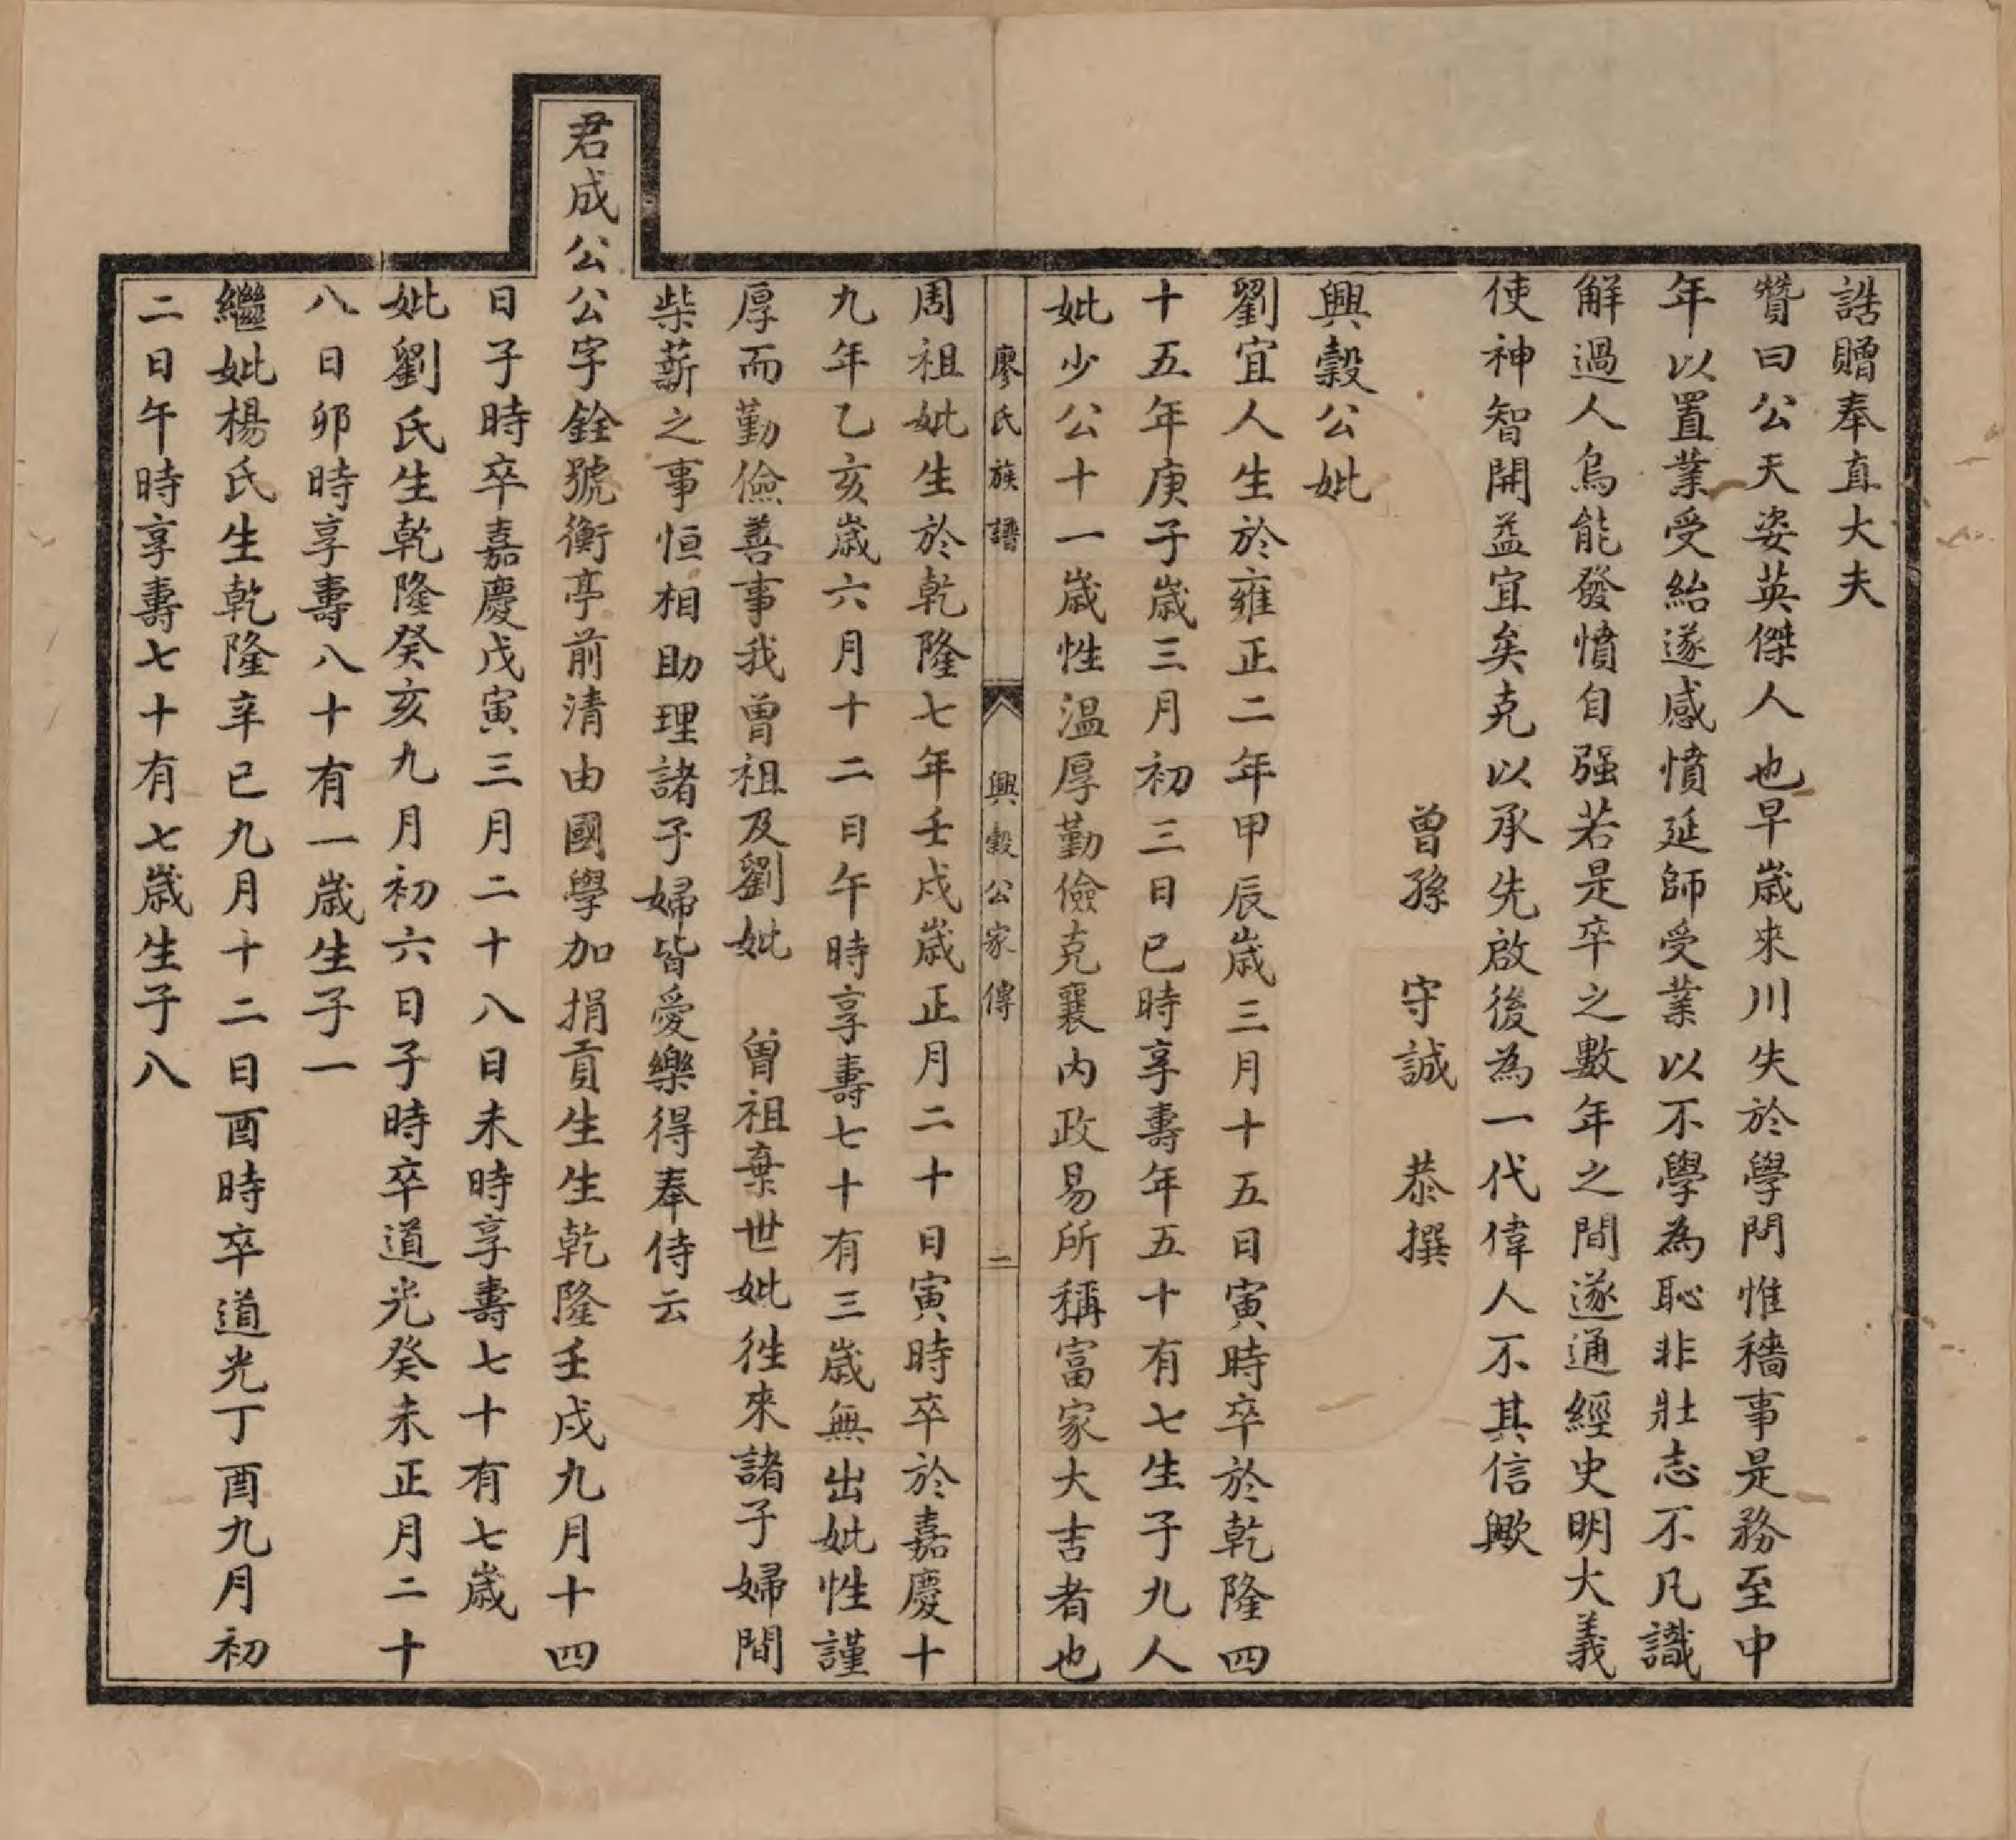 誥贈奉直大夫
贊曰公天姿英傑人也早歲來川失於學問惟穡事是務至中
年以置業受紿遂感憤延師受業以不學為恥非壯志不凡識
解過人烏能發憤自强若是卒之數年之間遂通經史明大義
使神智開益宜矣克以承先啟後為一代偉人不其信歟
曾孫 守誠 恭撰
興縠公妣
劉宜人生於雍正二年甲辰歲三月十五日寅時卒於乾隆四
十五年庚子歲三月初三日巳時享壽年五十有七生子九人
妣少公十一歲性溫厚勤儉克襄內政易所稱富家大吉者也
廖氏族譜 興縠公家傳 二
周祖妣生於乾隆七年壬戌歲正月二十日寅時卒於嘉慶十
九年乙亥歲六月十二日午時享壽七十有三歲無出妣性謹
厚而勤儉善事我曾祖及劉妣 曾祖棄世妣徃來諸子婦間
柴薪之事恒相助理諸子婦皆愛樂得奉侍云
君成公公字銓號衡亭前清由國學加捐貢生生乾隆壬戌九月十四
日子時卒嘉慶戊寅三月二十八日未時享壽七十有七歲
妣劉氏生乾隆癸亥九月初六日子時卒道光癸未正月二十
八日卯時享壽八十有一歲生子一
繼妣楊氏生乾隆辛巳九月十二日酉時卒道光丁酉九月初
二日午時享壽七十有七歲生子八